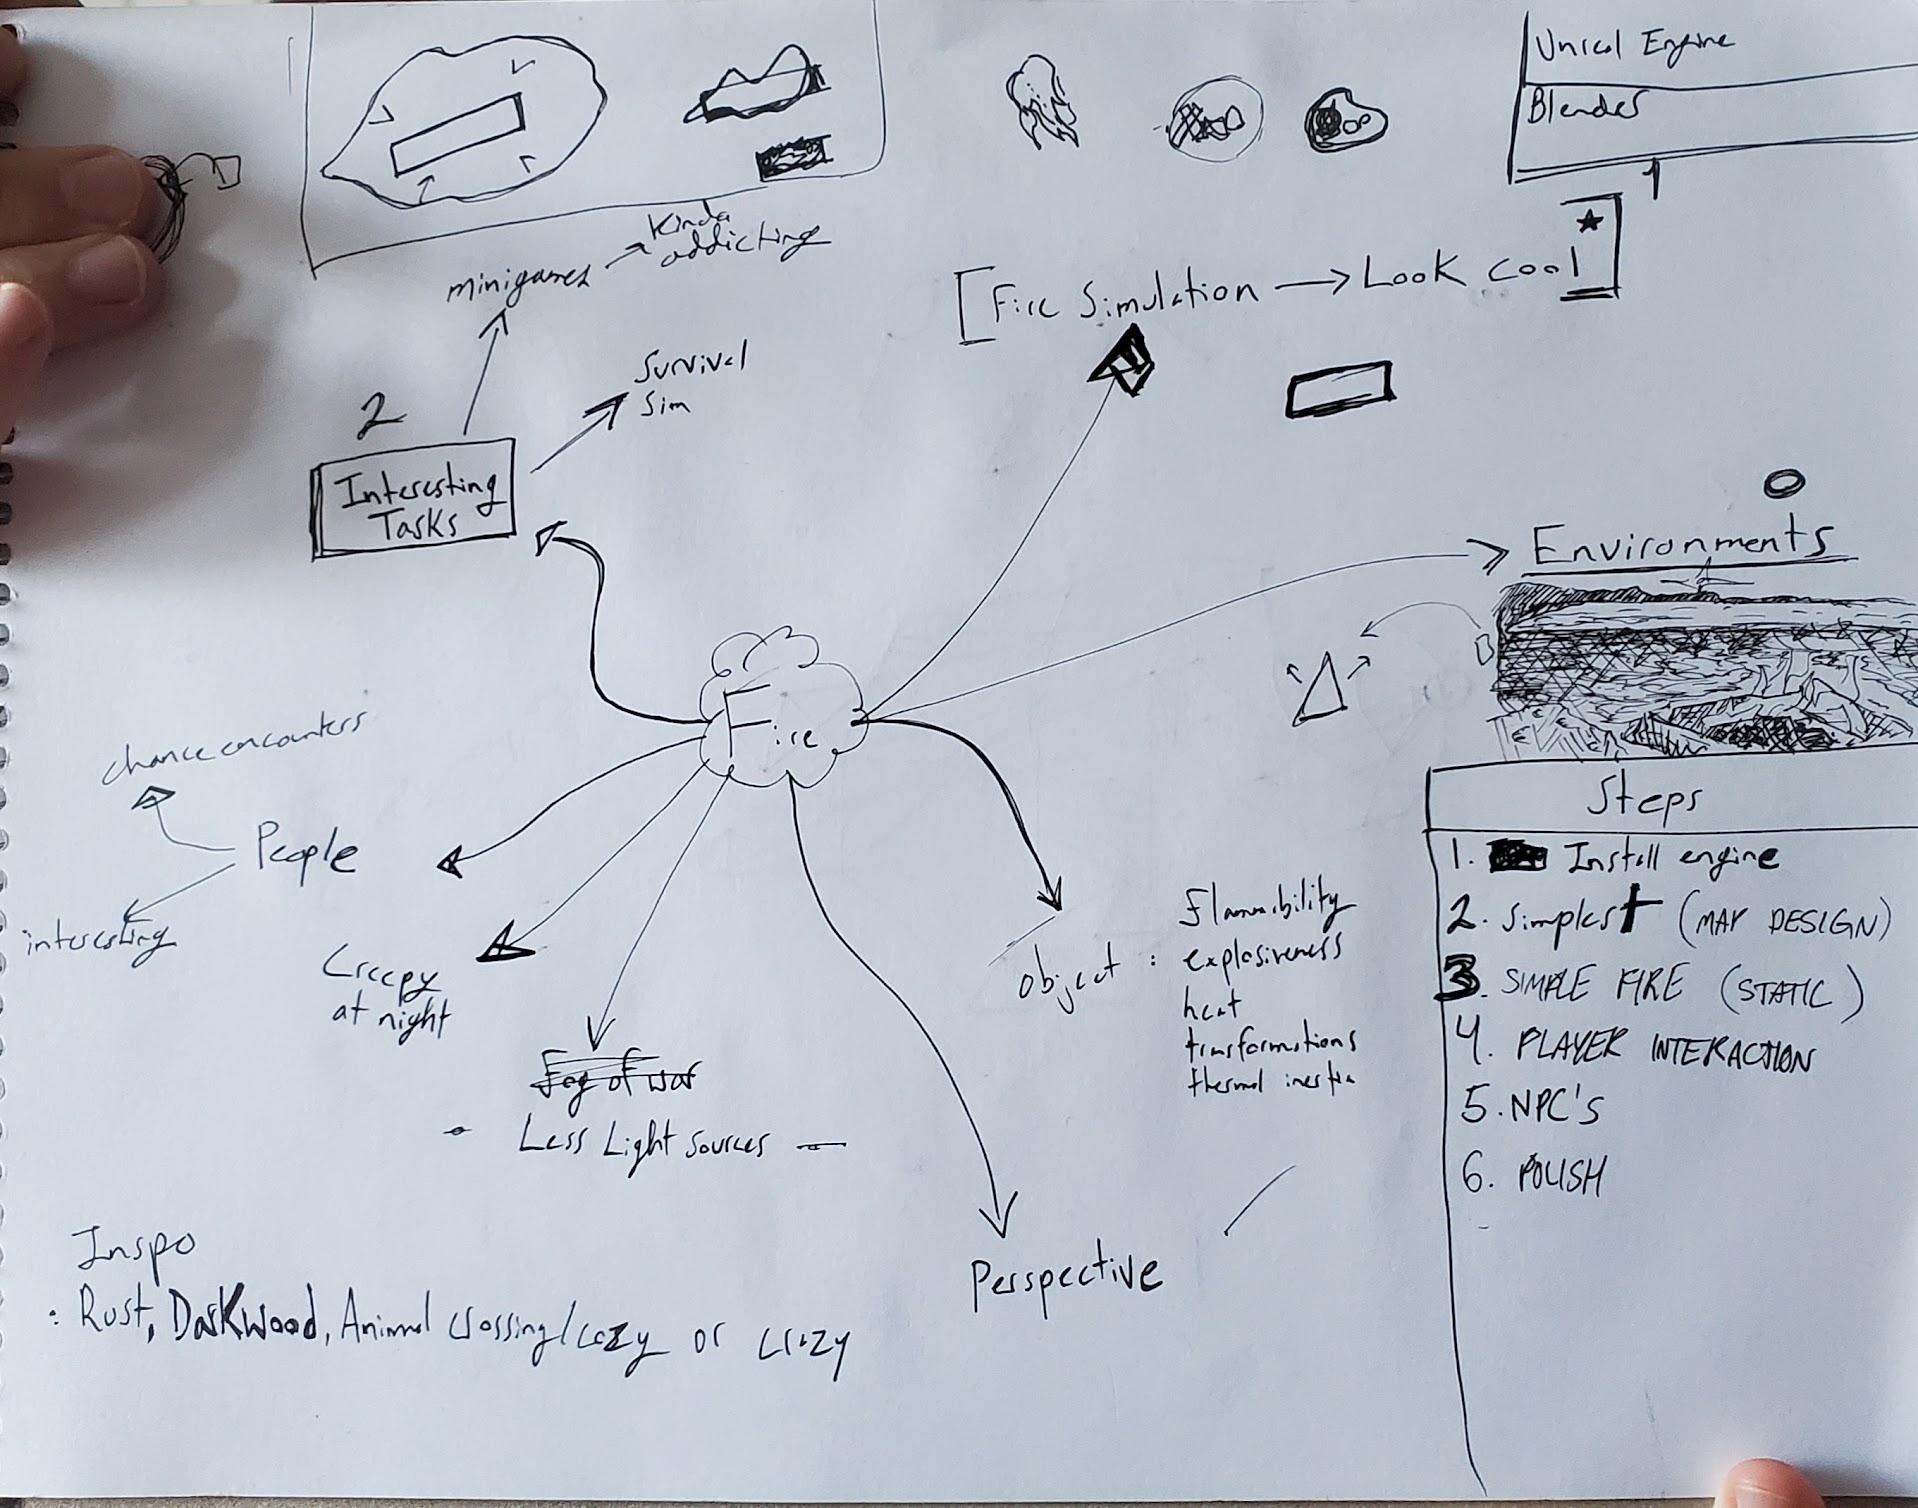 Unreal Engine
Blender
1
Kinda
addicting
minigames
[Fire Simulation → Look cool
Survival
Sim
2
Interesting
Tasks
Environments
Fire
chance encounters
People
interesting
Creepy
at night
Fog of war
- Less Light sources -
object : flammibility
explosiveness
heat
transformations
thermal inertia
Perspective
Steps
1. Install engine
2. Simplest (MAP DESIGN)
3. SIMPLE FIRE (STATIC)
4. PLAYER INTERACTION
5. NPC'S
6. POLISH
Inspo
: Rust, Darkwood, Animal crossing/cozy or crazy